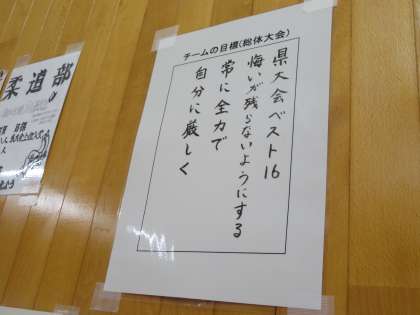 チームの目標(総体大会)
県大会ベスト16
悔いが残らないようにする
常に全力で
自分に厳しく
柔道部
の